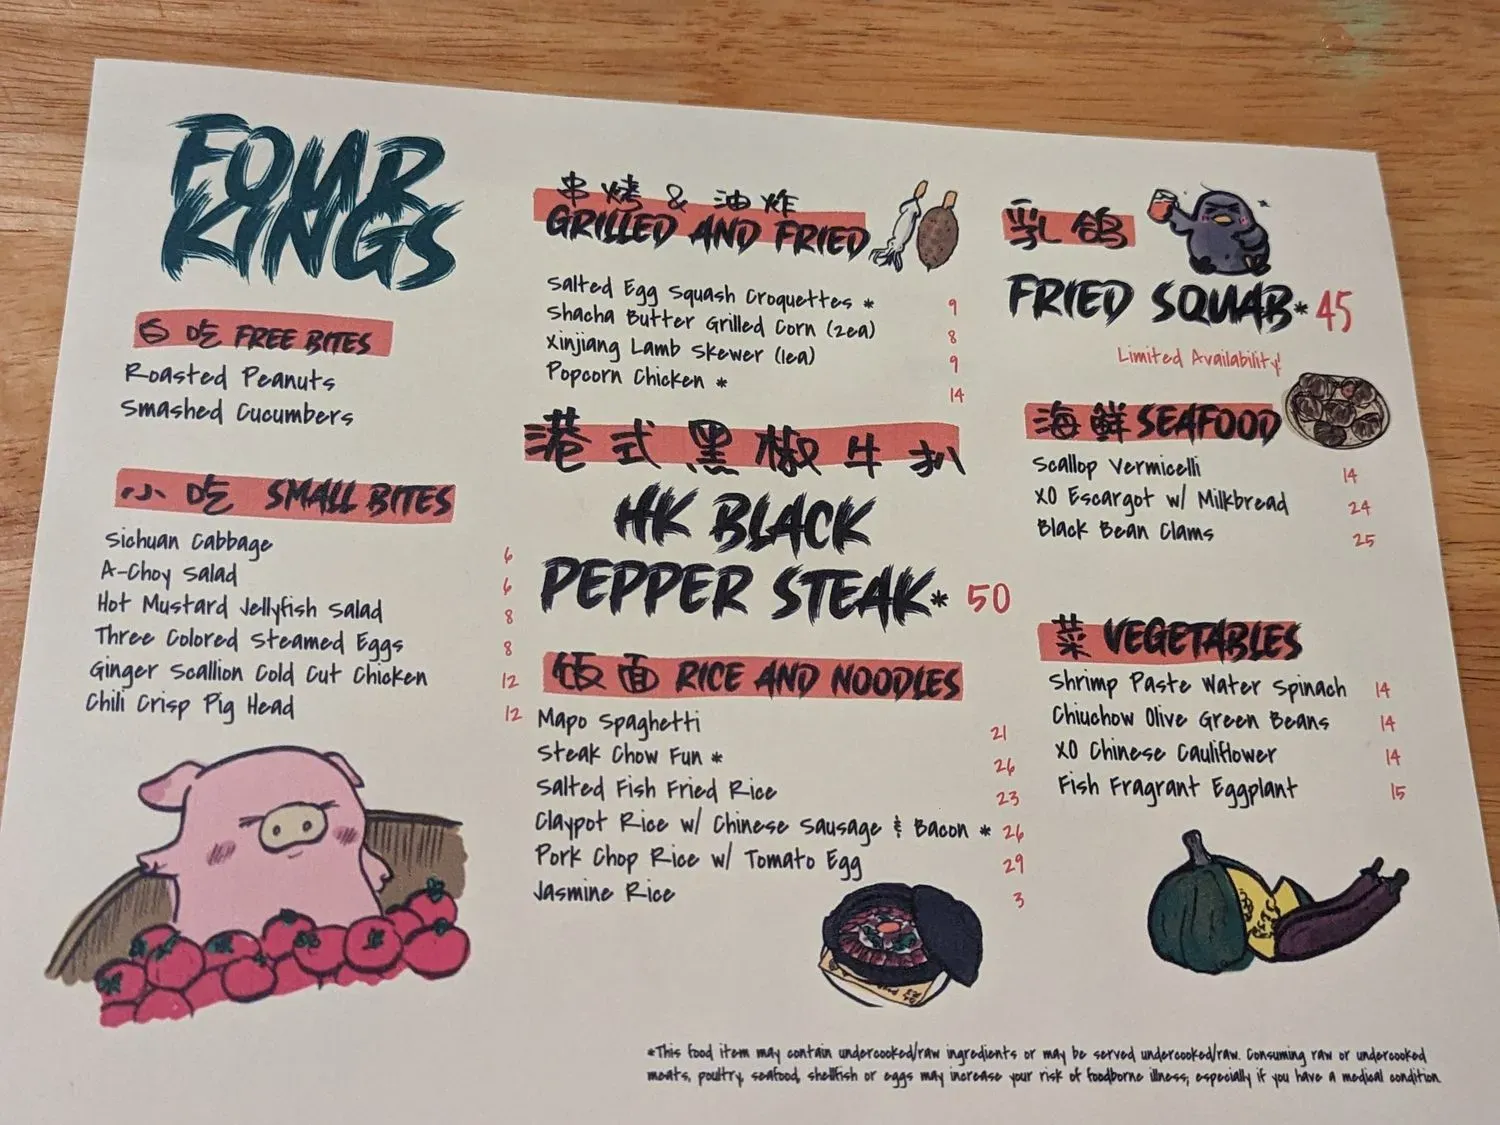 FOUR
KINGS
白 吃 FREE BITES
Roasted Peanuts
Smashed Cucumbers
小 吃 SMALL BITES
Sichuan Cabbage 6
A-Choy Salad 6
Hot Mustard Jellyfish Salad 8
Three Colored Steamed Eggs 8
Ginger Scallion Cold Cut Chicken 12
Chili Crisp Pig Head 12
串 烤 & 油 炸
GRILLED AND FRIED
Salted Egg Squash Croquettes * 9
Shacha Butter Grilled Corn (2ea) 8
Xinjiang Lamb Skewer (1ea) 9
Popcorn Chicken * 14
港 式 黑 椒 牛 扒
HK BLACK
PEPPER STEAK* 50
饭 面 RICE AND NOODLES
Mapo Spaghetti 21
Steak Chow Fun * 26
Salted Fish Fried Rice 23
Claypot Rice w/ Chinese Sausage & Bacon * 26
Pork Chop Rice w/ Tomato Egg 29
Jasmine Rice 3
乳 鸽
FRIED SQUAB* 45
Limited Availability!
海 鲜 SEAFOOD
Scallop Vermicelli 14
XO Escargot w/ Milkbread 24
Black Bean Clams 25
菜 VEGETABLES
Shrimp Paste Water Spinach 14
Chiuchow Olive Green Beans 14
XO Chinese Cauliflower 14
Fish Fragrant Eggplant 15
*This food item may contain undercooked/raw ingredients or may be served undercooked/raw. Consuming raw or undercooked
meats, poultry, seafood, shellfish or eggs may increase your risk of foodborne illness, especially if you have a medical condition.